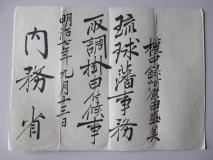 権中録濱田盛美
琉球藩事務
取調掛申付候事
明治七年九月十三日
内務省